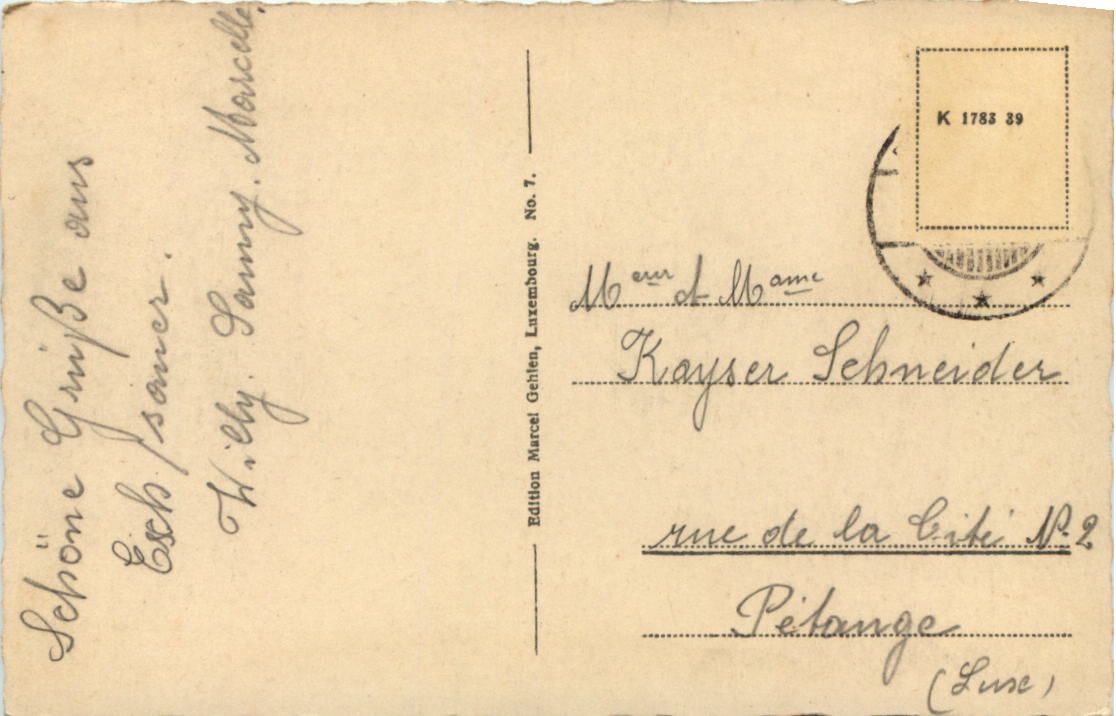 Schöne Grüße aus
Esch/sauer.
Willy. Sanny. Marcelle.
Edition Marcel Gehlen, Luxembourg. No. 7.
K 1783 39
Meur et Mame
Kayser Schneider
rue de la Cité No 2
Pétange
(Lux)